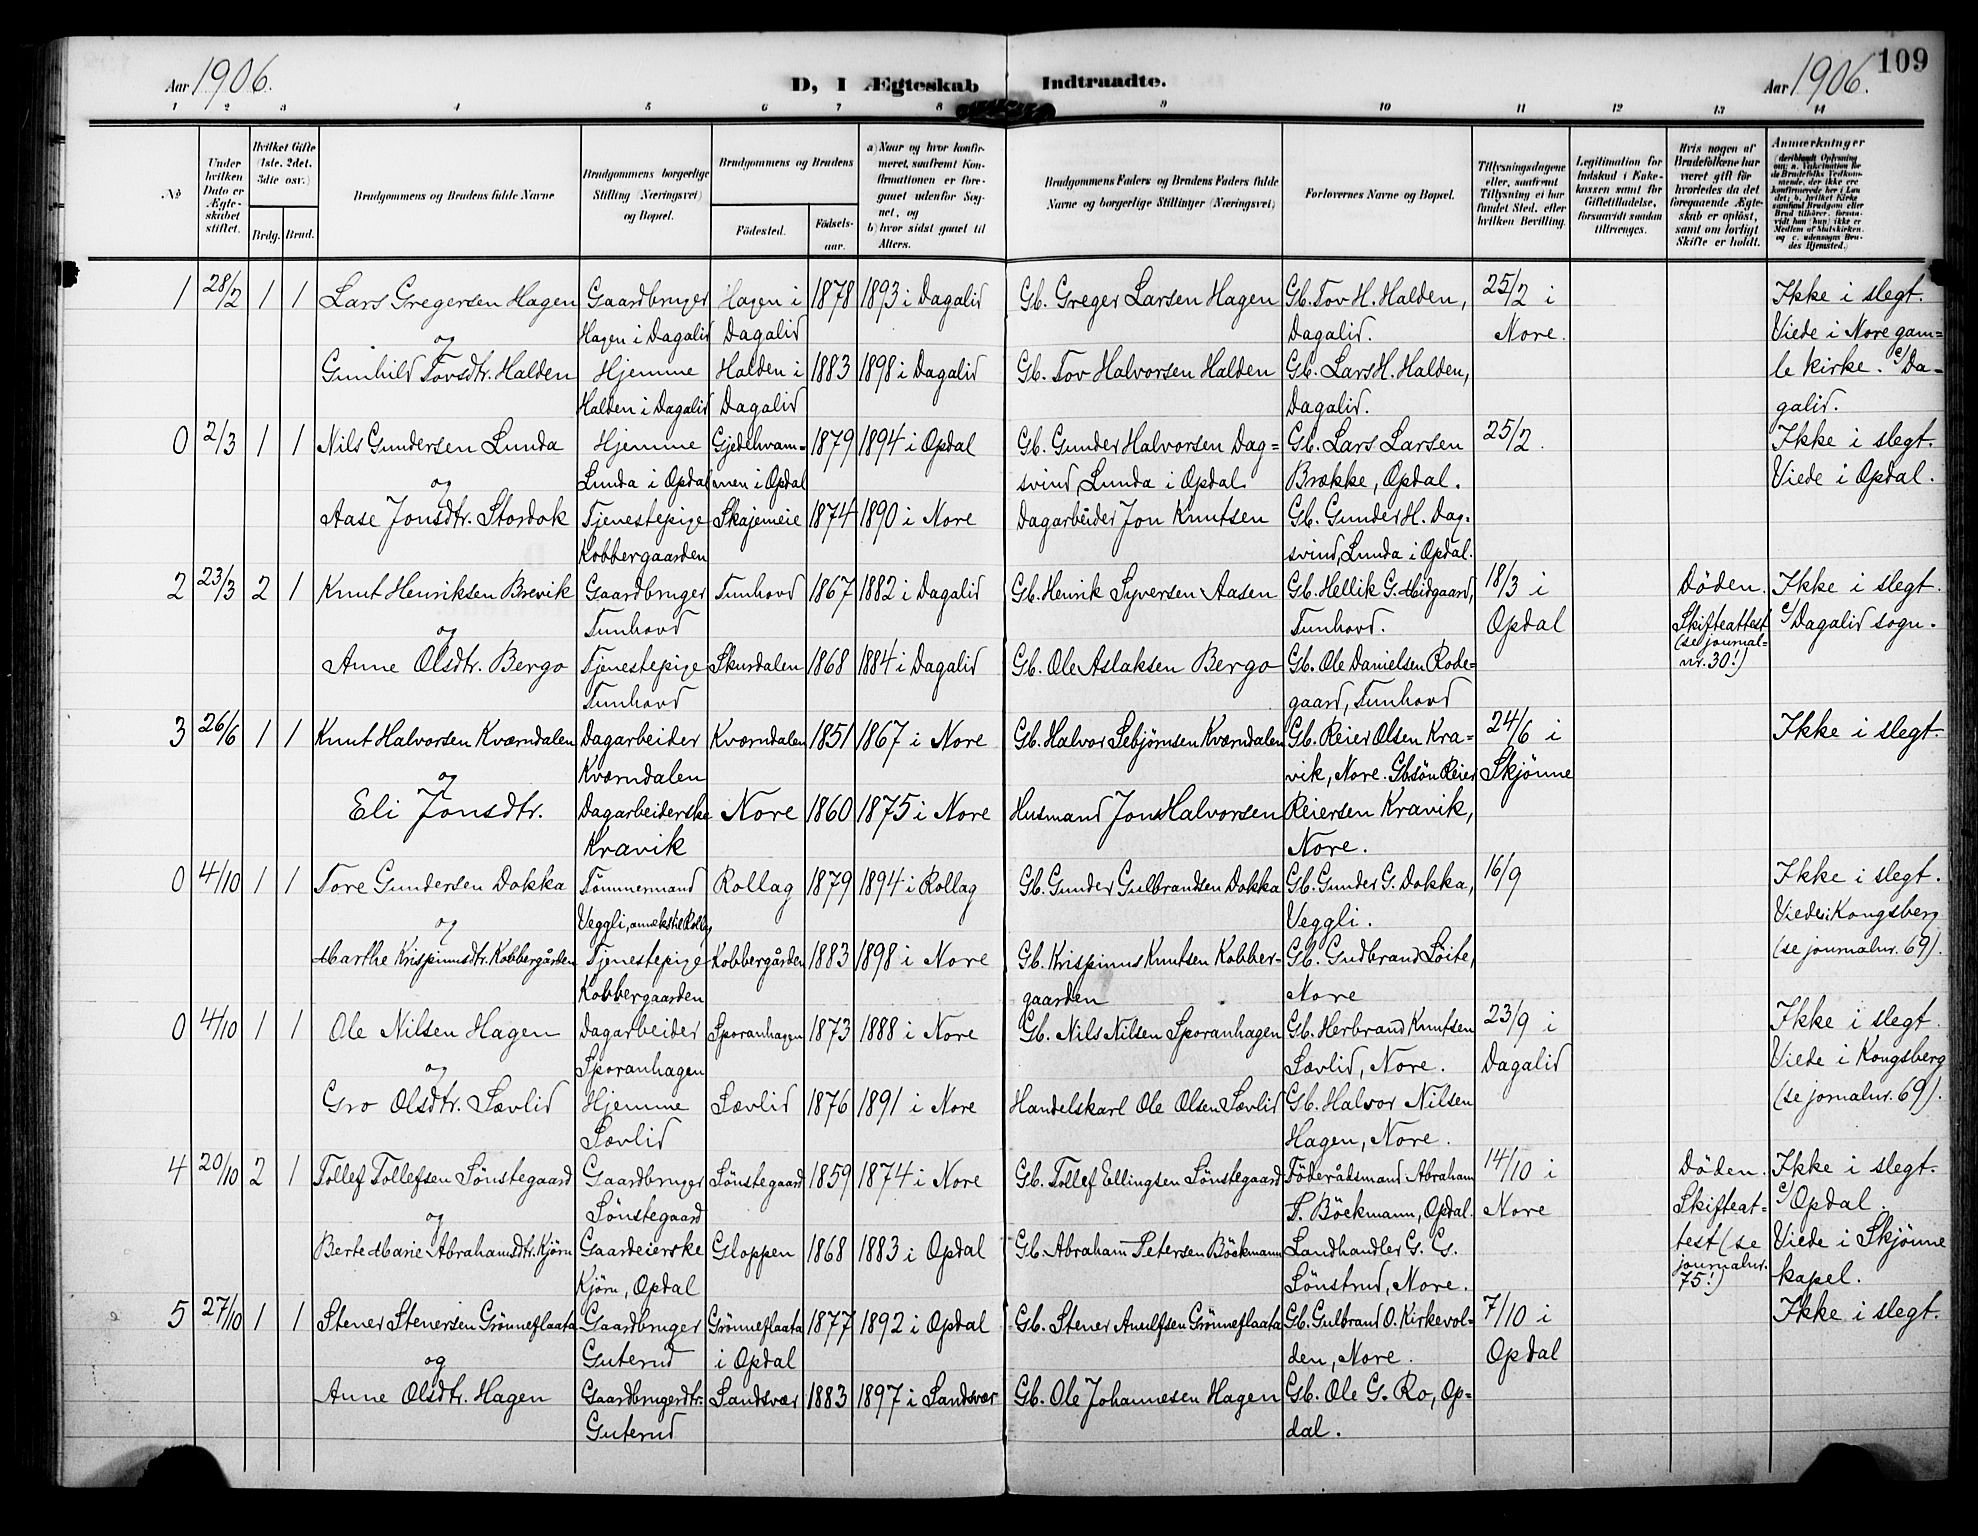 109
Aar 1906.
D, I Ægteskab Indtraadte.
Aar 1906.
1 2 3 4 5 6 7 8 9 10 11 12 13 14
No
Under hvilken Dato er Ægteskabet stiftet.
Hvilket Gifte (1ste, 2det, 3die osv.)
Brdg. Brud.
Brudgommens og Brudens fulde Navne
Brudgommens borgerlige Stilling (Næringsvei) og Bopæl.
Brudgommens og Brudens
Fødested.
Fødselsaar.
a) Naar og hvor konfirmeret, saafremt Konfirmationen er foregaaet udenfor Sognet, og
b) hvor sidst gaaet til Alters.
Brudgommens Faders og Brudens Faders fulde Navne og borgerlige Stillinger (Næringsvei)
Forlovernes Navne og Bopæl.
Tillysningsdagene eller, saafremt Tillysning ei har fundet Sted, efter hvilken Bevilling.
Legitimation for Indskud i Enkekassen samt for Giftetilladelse, forsaavidt saadan tiltrænges.
Hvis nogen af Brudefolkene har været gift før hvorledes da det foregaaende Ægteskab er opløst, samt om lovligt Skifte er holdt.
Anmærkninger
1 28/2 1 1 Lars Gregersen Hagen Gaardbruger Hagen i 1878 1893 i Dagalid Gb. Greger Larsen Hagen Gb. Tov H. Halden, 25/2 i Ikke i slegt.
og Hagen i Dagalid Dagalid Dagalid. Nore. Viede i Nore gam=
Gunhild Tovsdtr. Halden Hjemme Halden i 1883 1898 i Dagalid Gb. Tov Halvorsen Halden Gb. Lars H. Halden, le kirke. c/ Da=
Halden i Dagalid Dagalid Dagalid. galid.
0 2/3 1 1 Nils Gundersen Lunda Hjemme Gjedehvam= 1879 1894 i Opdal Gb. Gunder Halvorsen Dag= Gb. Lars Larsen 25/2. Ikke i slegt.
og Lunda i Opdal men i Opdal svind, Lunda i Opdal. Brække, Opdal. Viede i Opdal.
Aase Jonsdtr. Stordok Tjenestepige Skajemeie 1874 1890 i Nore Dagarbeider Jon Knutsen Gb. Gunder H. Dag=
Kobbergaarden svind, Lunda i Opdal.
2 23/3 2 1 Knut Henriksen Brevik Gaardbruger Tunhovd 1867 1882 i Dagalid Gb. Henrik Syversen Aasen Gb. Hellik G. Midgaard, 18/3 i Döden. Ikke i slegt.
og Tunhovd Tunhovd. Opdal Skifteattest c/ Dagalid sogn.
(se journal=
Anne Olsdtr. Bergo Tjenestepige Skurdalen 1868 1884 i Dagalid Gb. Ole Aslaksen Bergo Gb. Ole Danielsen Rode= nr. 30!)
Tunhovd gaard, Tunhovd
3 26/6 1 1 Knut Halvorsen Kværndalen Dagarbeider Kværndalen 1851 1867 i Nore Gb. Halvor Sebjörnsen Kværndalen Gb. Reier Olsen Kra= 24/6 i Ikke i slegt.
og Kværndalen vik, Nore. Gbsön Reier Skjönne
Eli Jonsdtr. Dagarbeiderske Nore 1860 1875 i Nore Husmand Jon Halvorsen Reiersen Kravik,
Kravik Nore.
0 4/10 1 1 Tore Gundersen Dokka Tömmermand Rollag 1879 1894 i Rollag Gb. Gunder Gulbrandsen Dokka Gb. Gunder G. Dokka, 16/9 Ikke i slegt.
og Veggli, annekstil Rollag Veggli. Viede i Kongsberg
Marthe Krispinusdtr. Kobbergården Tjenestepige Kobbergården 1883 1898 i Nore Gb. Krispinus Knutsen Kobber= Gb. Gudbrand Löite, (se journalnr. 69).
Kobbergaarden gaarden Nore
0 4/10 1 1 Ole Nilsen Hagen Dagarbeider Sporanhagen 1873 1888 i Nore Gb. Nils Nilsen Sporanhagen Gb. Herbrand Knutsen 23/9 i Ikke i slegt.
og Sporanhagen Sævlid, Nore. Dagalid Viede i Kongsberg
Gro Olsdtr. Sævlid Hjemme Sævlid 1876 1891 i Nore Handelskarl Ole Olsen Sævlid Gb. Halvor Nilsen (se jornalnr. 69).
Sævlid Hagen, Nore.
4 20/10 2 1 Tollef Tollefsen Sönstegaard Gaardbruger Sönstegaard 1859 1874 i Nore Gb. Tollef Ellingsen Sönstegaard Föderådsmand Abraham 14/10 i Döden. Ikke i slegt.
og Sönstegaard P. Böckmann, Opdal. Nore Skifteat= c/ Opdal.
Berte Marie Abrahamsdtr. Kjörn Gaardeierske Gloppen 1868 1883 i Opdal Gb. Abraham Petersen Böckmann Landhandler G. G. test (se Viede i Skjönne
Kjörn, Opdal Sönstrud, Nore. journalnr. 75!) kapel.
5 27/10 1 1 Stener Stenersen Grönneflaata Gaardbruger Grönneflaata 1877 1892 i Opdal Gb. Stener Anulfsen Grönneflaata Gb. Gulbrand O. Kirkevol= 7/10 i Ikke i slegt.
og Guterud i Opdal den, Nore. Opdal
Anne Olsdtr. Hagen Gaardbrugerdtr. Sandsvær 1883 1897 i Sandsvær Gb. Ole Johannesen Hagen Gb. Ole G. Ro, Op=
Guterud dal.